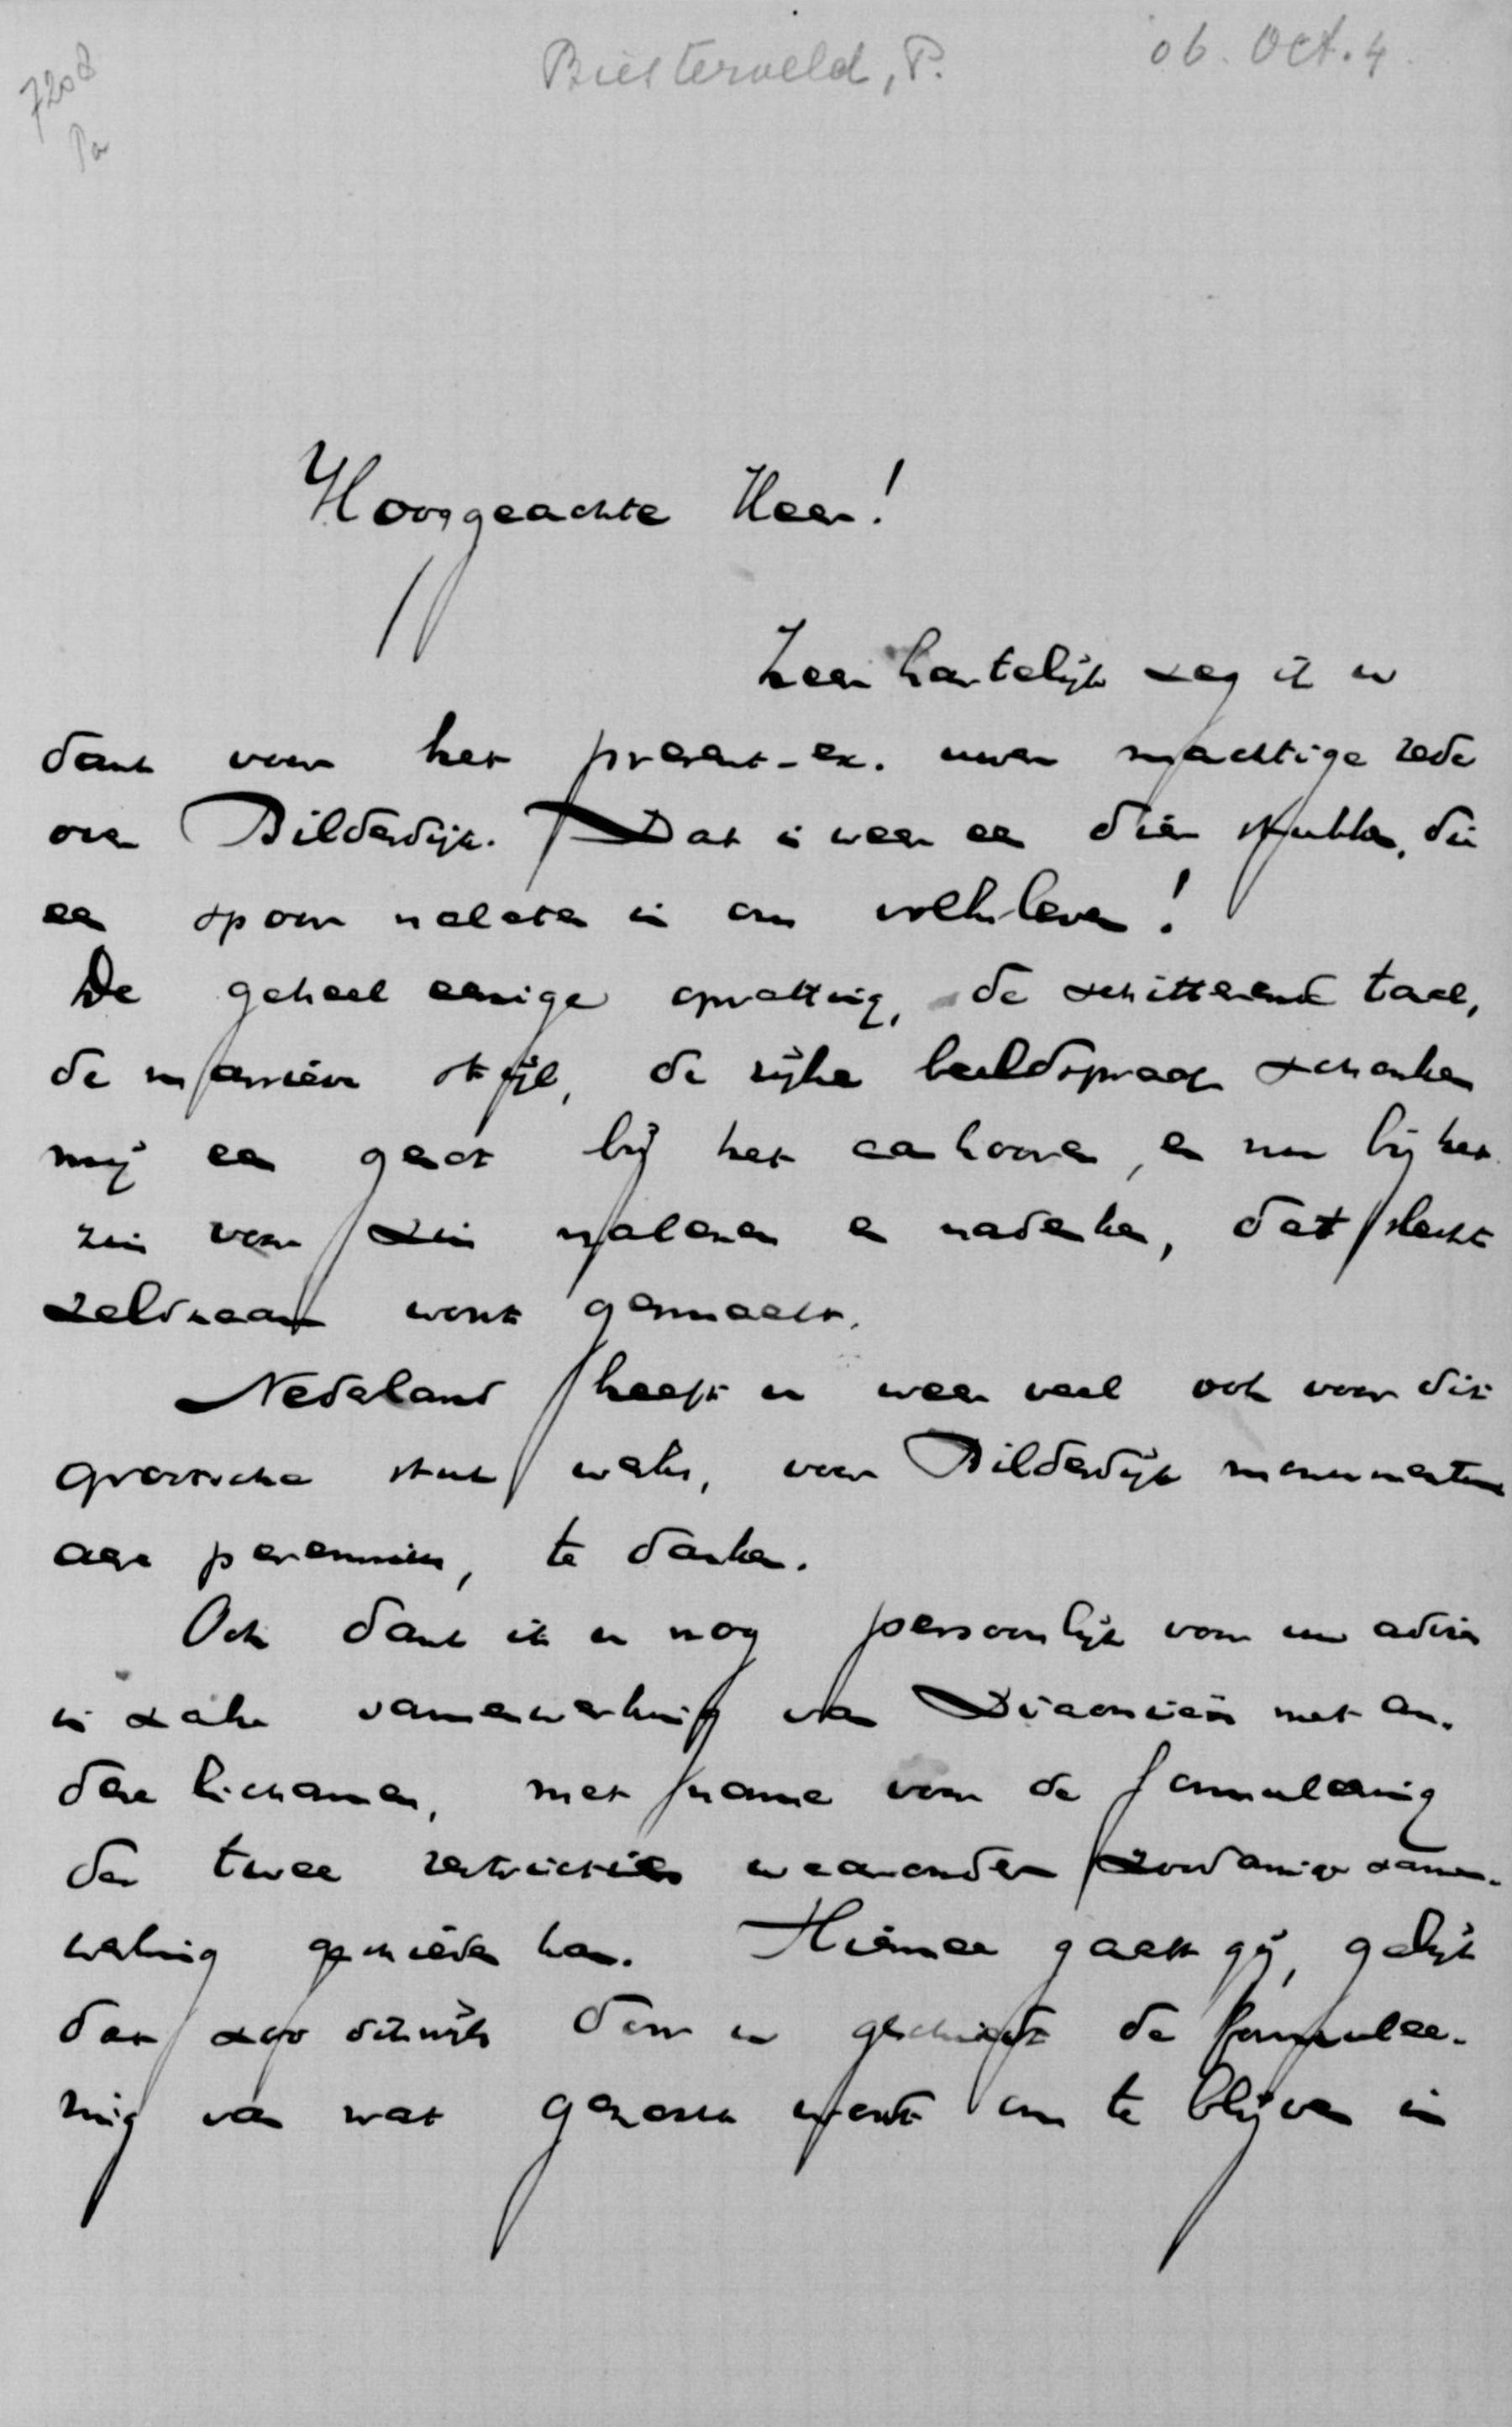 7208
Pa
Biesterveld, P.
06. Oct. 4
Hooggeachte Heer!
Zeer hartelijk zeg ik u
dank voor het present-ex. uwer machtige rede
over Bilderdijk. Dat is weer een dier stukken, die
een spoor nalaten in ons volksleven!
De geheel eenige opvatting, de schitterende taal,
de massieve stijl, de rijke beeldspraak schonken
mij een genot bij het aanhooren, en nu bij het
zin voor zin nalezen en nadenken, dat slechts
zeldzaam wordt gesmaakt.
Nederland heeft u weer veel ook voor dit
grootsche stuk werks, voor Bilderdijk monumentum
aere perennius, te danken.
Ook dank ik u nog persoonlijk voor uw advies
in zake samenwerking van Diaconieën met an-
dere lichamen, met name voor de formuleering
der twee restrictiën waaronder zoodanige samen-
werking geschieden kan. Hiermee gaaft gij, gelijk
dat zoo dikwijls door u geschiedt de formulee-
ring van wat gezocht werd om te blijven in